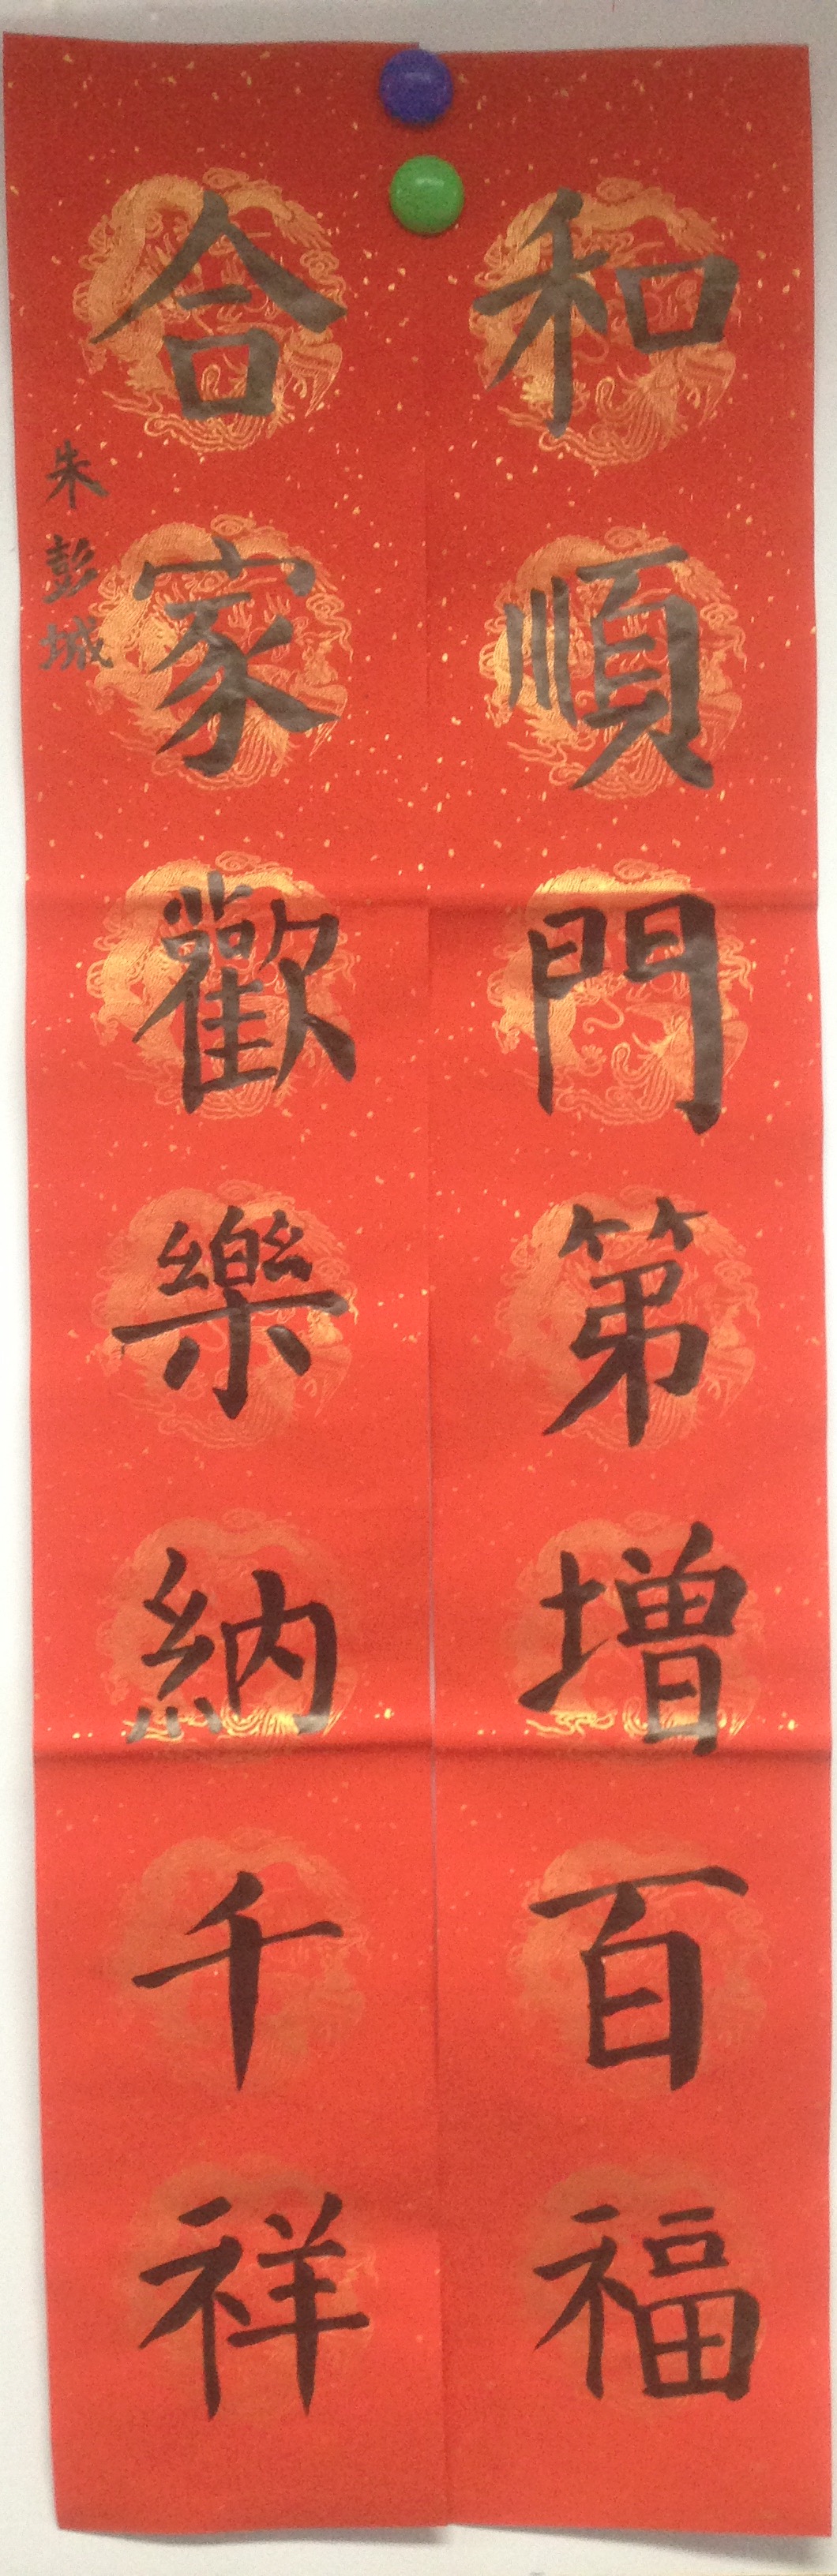 和順門第增百福
合家歡樂納千祥
朱彭城